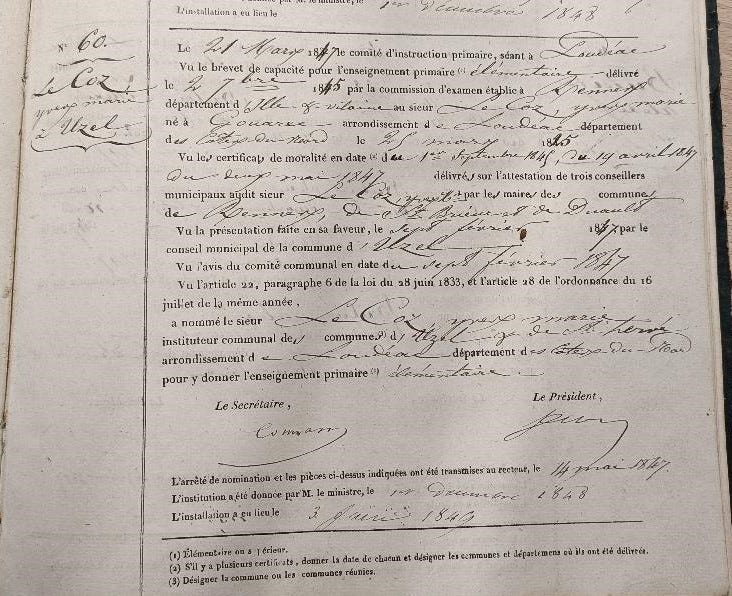 L'installation a eu lieu le 1er décembre 1848
N° 60.
Le Coz
yves marie
à Uzel
Le 21 Mars 1847 le comité d'instruction primaire, séant à Loudéac
Vu le brevet de capacité pour l'enseignement primaire (1) élémentaire délivré
le 2 7bre 1845 par la commission d'examen établie à Rennes
département d'Ille & vilaine au sieur Le Coz, yves marie
né à Gouarec arrondissement de Loudéac département
des Côtes-du-Nord le 25 mars 1825
Vu les certificats de moralité en date (2) du 1er Septembre 1845, du 14 avril 1847
du deux mai 1847 délivrés, sur l'attestation de trois conseillers
municipaux audit sieur Le Coz, par les maires des communes
de Rennes, de St Brieuc et de Duault
Vu la présentation faite en sa faveur, le sept février 1847 par le
conseil municipal de la commune d'Uzel
Vu l'avis du comité communal en date du sept février 1847
Vu l'article 22, paragraphe 6 de la loi du 28 juin 1833, et l'article 28 de l'ordonnance du 16
juillet de la même année,
a nommé le sieur Le Coz yves marie
instituteur communal des communes d'Uzel & de St hervé
arrondissement de Loudéac département des Côtes-du-Nord
pour y donner l'enseignement primaire (1) élémentaire.
Le Secrétaire, Le Président,
L'arrêté de nomination et les pièces ci-dessus indiquées ont été transmises au recteur, le 14 mai 1847.
L'institution a été donnée par M. le ministre, le 1er décembre 1848
L'installation a eu lieu le 3 1849
(1) Élémentaire ou supérieur.
(2) S'il y a plusieurs certificats, donner la date de chacun et désigner les communes et départemens où ils ont été délivrés.
(3) Désigner la commune ou les communes réunies.